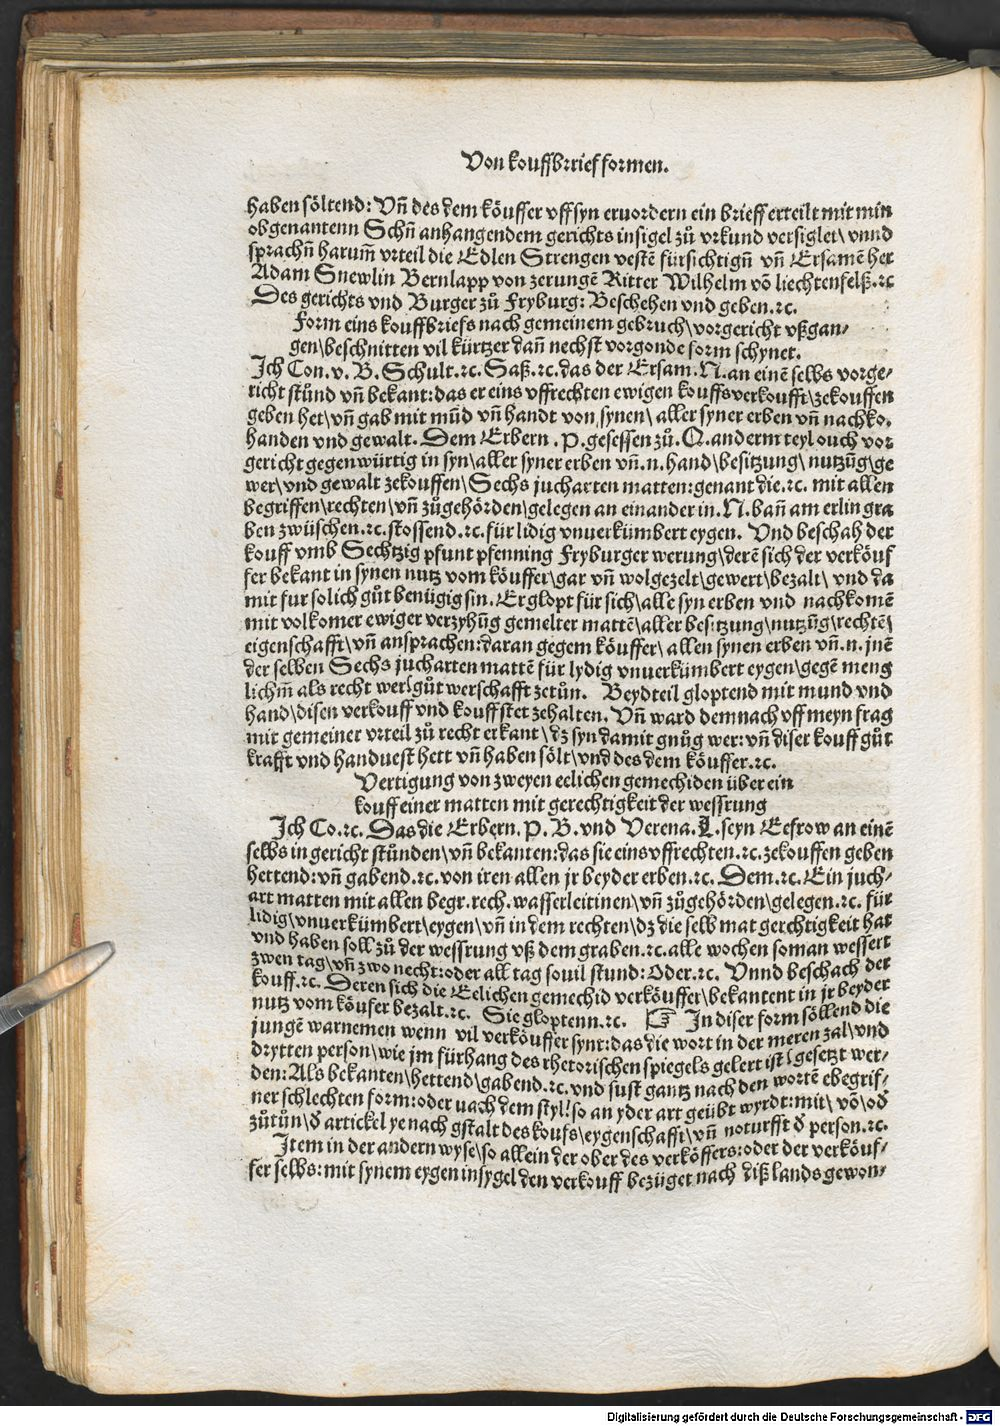 Von kouffbrief formen.
haben söltend: Vñ des dem köuffer vff syn eruordern ein brieff erteilt mit min
obgenantenn Schñ anhangendem gerichts insigel zů vrkund versiglet\ vnnd
sprachñ harum̃ vrteil die Edlen Strengen vestẽ fürsichtigñ vñ Ersamẽ her
Adam Snewlin Bernlapp von zerungẽ Ritter Wilhelm võ liechtenfelß.ꝛc
Des gerichts vnd Burger zů Fryburg: Beschehen vnd geben.ꝛc.
Form eins kouffbriefs nach gemeinem gebruch\ vorgericht vßgan-
gen\ beschnitten vil kürtzer dañ nechst vorgonde form schynet.
Ich Con. v. B. Schult.ꝛc. Saß.ꝛc. das der Ersam. N. an einẽ selbs vorge-
richt stůnd vñ bekant: das er eins vffrechten ewigen kouffs verkoufft\ zekouffen
geben het\ vñ gab mit mũd vñ handt von synen\ aller syner erben vñ nachko.
handen vnd gewalt. Dem Erbern .P. gesessen zů. Q. an derm teyl ouch vor
gericht gegenwürtig in syn\ aller syner erben vñ.n. hand\ besitzung\ nutzũg\ ge
wer\ vnd gewalt zekouffen\ Sechs jucharten matten: genant die.ꝛc. mit allen
begriffen\ rechten\ vñ zůgehörden\ gelegen an einander in. N. bañ am erlin gra
ben zwüschen.ꝛc. stossend.ꝛc. für lidig vnuerkümbert eygen. Vnd beschah der
kouff vmb Sechtzig pfunt pfenning Fryburger werung\ derẽ sich der verköuf
fer bekant in synen nutz vom köuffer\ gar vñ wolgezelt\ gewert\ bezalt\ vnd da
mit fur solich gůt benügig sin. Er glopt für sich\ alle syn erben vnd nachkomẽ
mit volkomer ewiger verzyhũg gemelter mattẽ\ aller besitzung\ nutzũg\ rechtẽ\
eigenschafft\ vñ ansprachen: daran gegem köuffer\ allen synen erben vñ.n. jnẽ
der selben Sechs jucharten mattẽ für lydig vnuerkümbert eygen\ gegẽ meng
lichm̃ als recht wer\ gůt werschafft zetůn. Beydteil gloptend mit mund vnd
hand\ disen verkouff vnd kouff stet zehalten. Vñ ward demnach vff meyn frag
mit gemeiner vrteil zů recht erkant\ dz syn damit gnůg wer: vñ diser kouff gůt
krafft vnd handuest hett vñ haben sölt\ vnd des dem köuffer.ꝛc.
Vertigung von zweyen eelichen gemechiden über ein
kouff einer matten mit gerechtigkeit der wessrung
Ich Co.ꝛc. Das die Erbern. P. B. vnd Verena. L. seyn Eefrow an einẽ
selbs in gericht stůnden\ vñ bekanten: das sie eins vffrechten.ꝛc. zekouffen geben
hettend: vñ gabend.ꝛc. von iren allen jr beyder erben.ꝛc. Dem.ꝛc. Ein juch-
art matten mit allen begr. rech. wasserleitinen\ vñ zůgehörden\ gelegen.ꝛc. für
lidig\ vnuerkümbert\ eygen\ vñ in dem rechten\ dz die selb mat gerechtigkeit hat
vnd haben soll zů der wessrung vß dem graben.ꝛc. alle wochen so man wessert
zwen tag\ vñ zwo necht: oder all tag souil stund: Oder.ꝛc. Vnnd beschach der
kouff.ꝛc. Deren sich die Eelichen gemechid verköuffer\ bekantent in jr beyder
nutz vom köufer bezalt.ꝛc. Sie gloptenn.ꝛc. ☞ In diser form söllend die
jungẽ warnemen wenn vil verköuffer synt: das die wort in der meren zal\ vnd
drytten person\ wie jm fürhang des rhetorischen spiegels gelert ist\ gesetzt wer-
den: Als bekanten\ hettend\ gabend.ꝛc. vnd sust gantz nach den wortẽ ebegrif-
ner schlechten form: oder nach dem styl\ so an yder art geübt wyrdt: mit\ võ\ oď
zůtůn\ ď artickel ye nach gstalt des koufs\ eygenschafft\ vñ noturfft ď person.ꝛc.
Item in der andern wyse\ so allein der ober des verköffers: oder der verköuf-
fer selbs: mit synem eygen insygel den verkouff bezüget nach diß lands gewon-
Digitalisierung gefördert durch die Deutsche Forschungsgemeinschaft - DFG